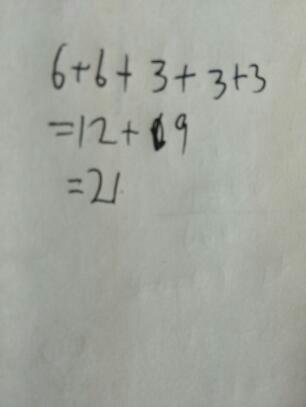 6+6+3+3+3
=12+9
=21